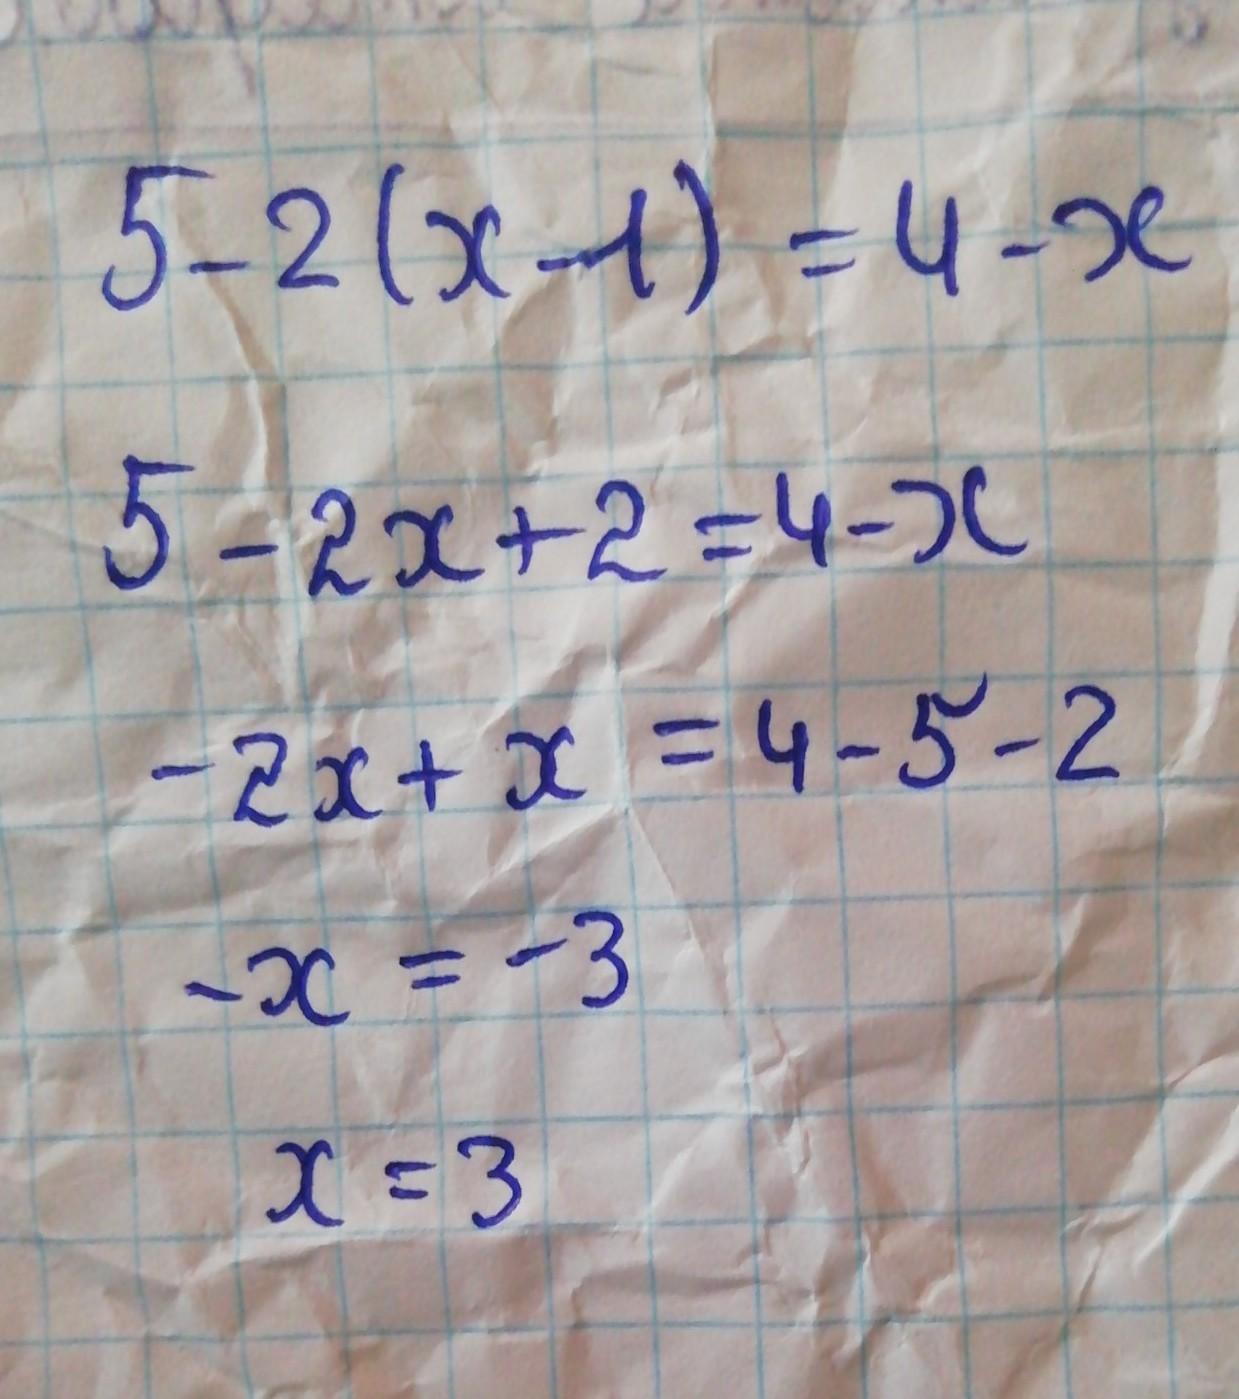 5-2(x-1) = 4-x
5-2x+2=4-x
-2x+x = 4-5-2
-x = -3
x = 3